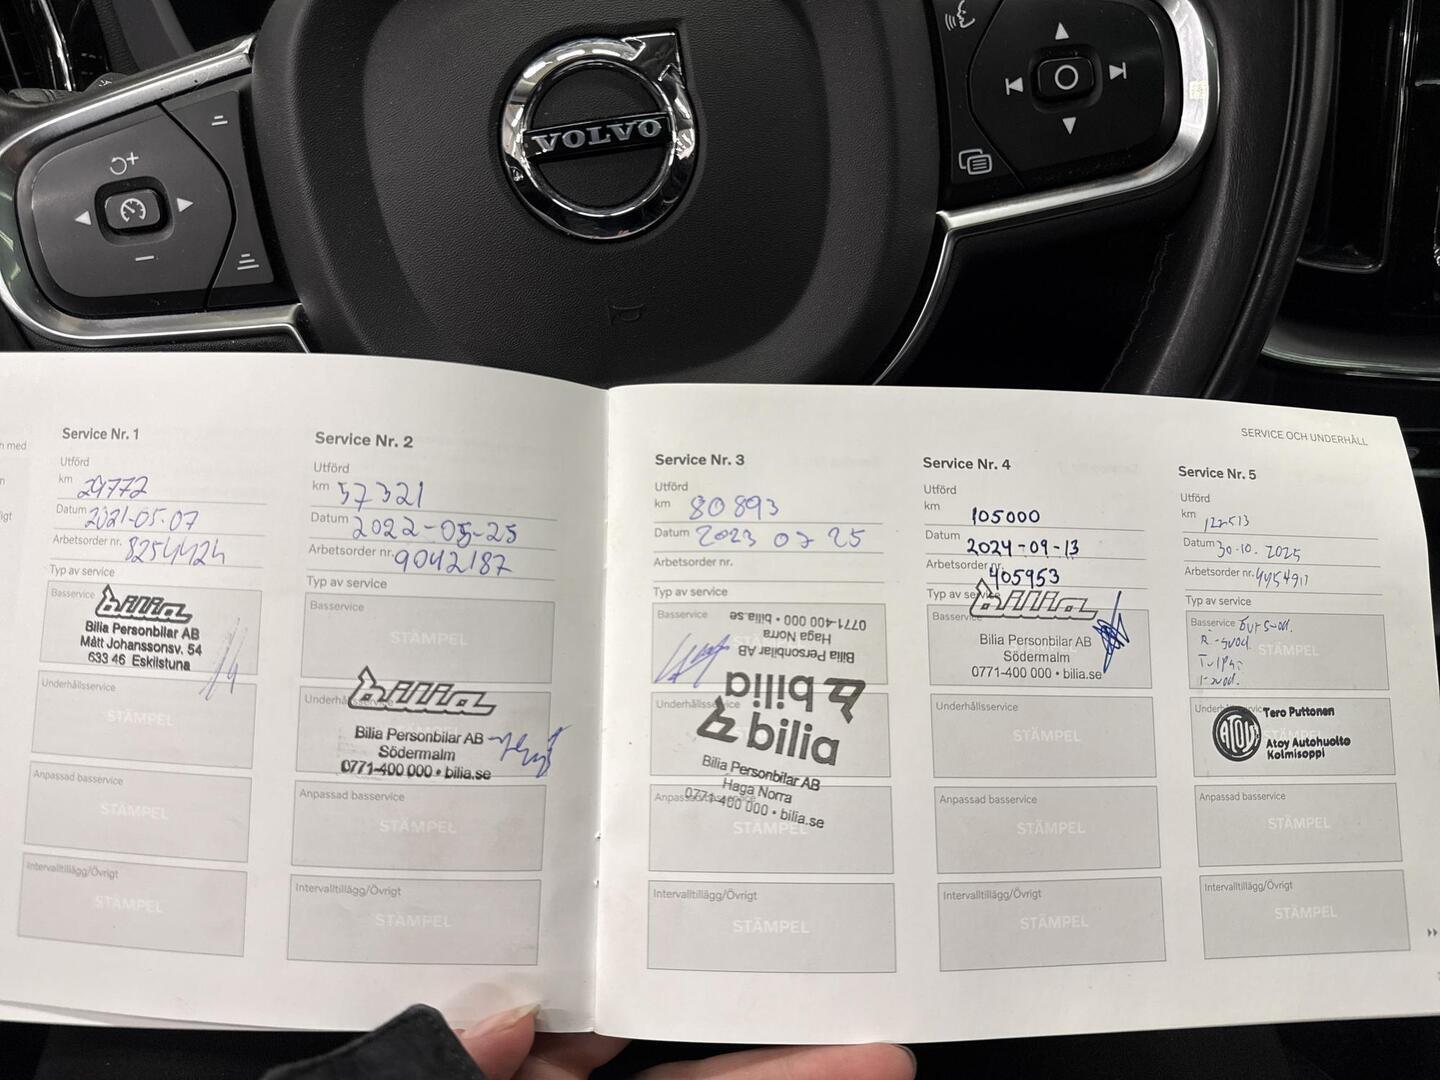 VOLVO
SERVICE OCH UNDERHÅLL
Service Nr. 1
Utförd
km 29772
Datum 2021-05-07
Arbetsorder nr. 8254424
Typ av service
Basservice
bilia
Bilia Personbilar AB
Mått Johanssonsv. 54
633 46 Eskilstuna
Underhållsservice
STÄMPEL
Anpassad basservice
STÄMPEL
Intervalltillägg/Övrigt
STÄMPEL
Service Nr. 2
Utförd
km 57321
Datum 2022-05-25
Arbetsorder nr. 9042187
Typ av service
Basservice
STÄMPEL
bilia
Bilia Personbilar AB
Södermalm
0771-400 000 • bilia.se
Anpassad basservice
STÄMPEL
Intervalltillägg/Övrigt
STÄMPEL
Service Nr. 3
Utförd
km 80893
Datum 2023 07 25
Arbetsorder nr.
Typ av service
Basservice
0771-400 000 • bilia.se
Haga Norra
Bilia Personbilar AB
bilia
Underhållsservice
bilia
Bilia Personbilar AB
Haga Norra
0771-400 000 • bilia.se
Anpassad basservice
STÄMPEL
Intervalltillägg/Övrigt
STÄMPEL
Service Nr. 4
Utförd
km 105000
Datum 2024-09-13
Arbetsorder nr. 405953
Typ av service
Basservice
bilia
Bilia Personbilar AB
Södermalm
0771-400 000 • bilia.se
Underhållsservice
STÄMPEL
Anpassad basservice
STÄMPEL
Intervalltillägg/Övrigt
STÄMPEL
Service Nr. 5
Utförd
km
Datum 30-10. 2025
Arbetsorder nr. 4454911
Typ av service
Basservice
STÄMPEL
Underhållsservice
ATOY
Tero Puttonen
Atoy Autohuolto
Kolmisoppi
Anpassad basservice
STÄMPEL
Intervalltillägg/Övrigt
STÄMPEL